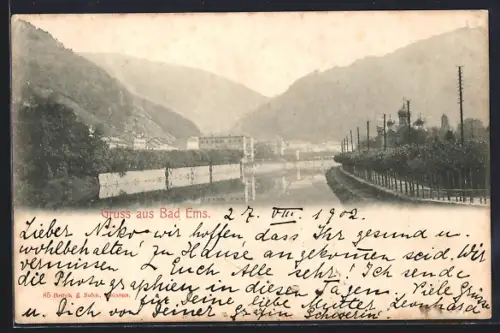 Gruss aus Bad Ems.
27. VIII. 1902.
Lieber Niko wir hoffen, dass Ihr gesund u.
wohlbehalten zu Hause angekommen seid. Wir
vermissen Euch Alle sehr! Ich sende
die Photographien in diesen Tagen. Viele Grüsse
für Deine liebe Mutter, Leonhard
u. Dich von Deiner Schwerin